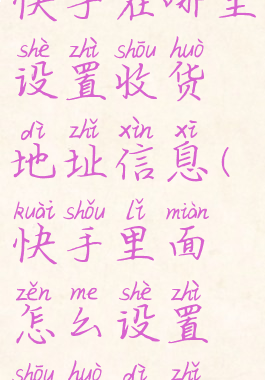 快手在哪里
shè zhì shōu huò
设置收货
dì zhǐ xìn xī
地址信息(
kuài shǒu lǐ miàn
快手里面
zěn me shè zhì
怎么设置
shōu huò dì zhǐ